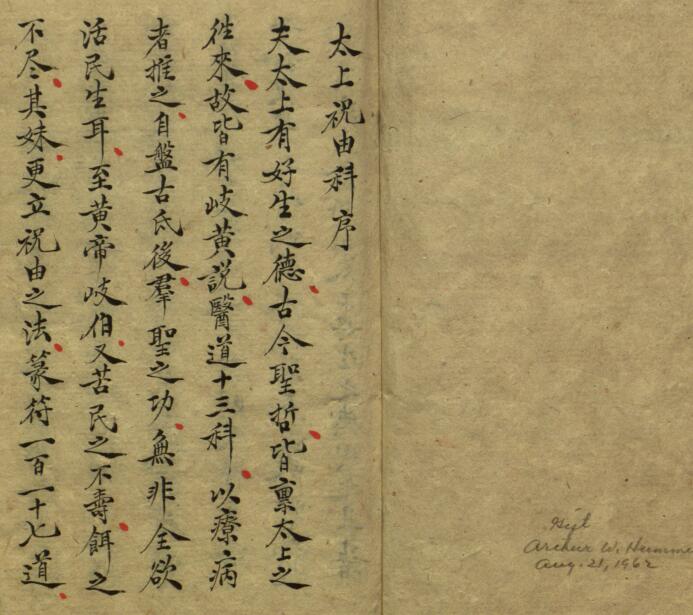 太上祝由科序
夫太上有好生之德古今聖哲皆稟太上之
徃來故皆有岐黄説醫道十三科以療病
者推之自盤古氏後羣聖之功無非全欲
活民生耳至黄帝岐伯又苦民之不壽餌之
不尽其妹更立祝由之法篆符一百一十七道
Gift
Arthur W. Hummel
Aug. 21, 1962